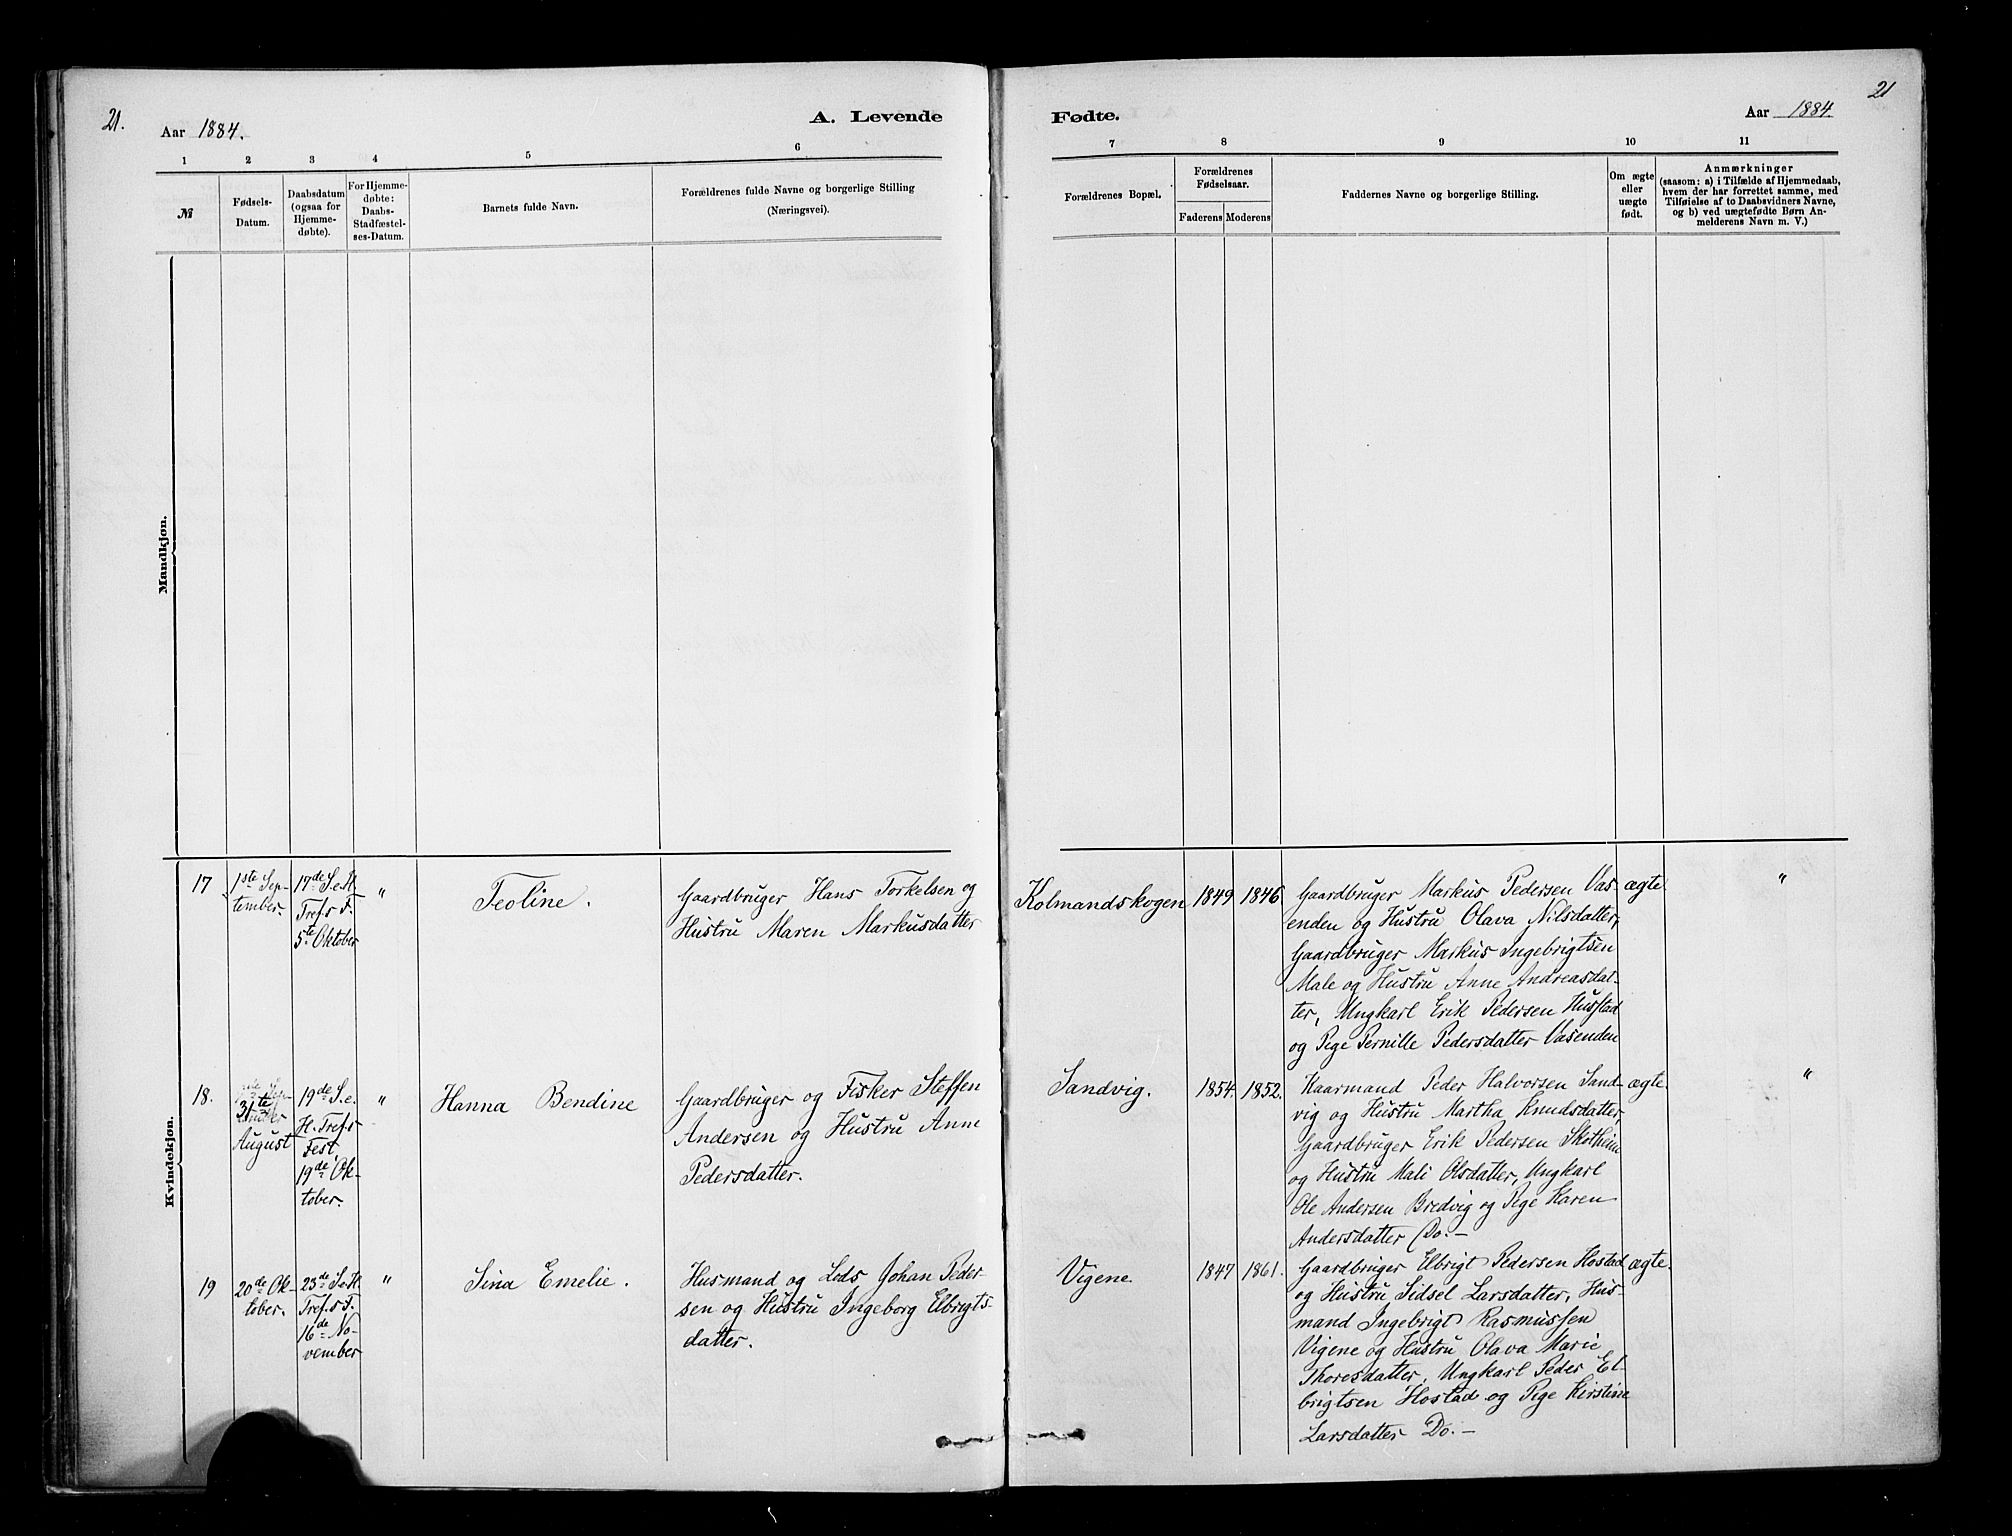 21.
Aar 1884.
A. Levende
Fødte.
Aar 1884.
21
1 2 3 4 5 6 7 8 9 10 11
№
Fødsels-
Datum.
Daabsdatum
(ogsaa for
Hjemme-
døbte).
For Hjemme-
døbte:
Daabs-
Stadfæstel-
ses-Datum.
Barnets fulde Navn.
Forældrenes fulde Navne og borgerlige Stilling
(Næringsvei).
Forældrenes Bopæl.
Forældrenes
Fødselsaar.
Faderens Moderens
Faddernes Navne og borgerlige Stilling.
Om ægte
eller
uægte
født.
Anmærkninger
(saasom: a) i Tilfælde af Hjemmedaab,
hvem der har forrettet samme, med
Tilføielse af to Daabsvidners Navne,
og b) ved uægtefødte Børn An-
melderens Navn m. V.)
Mandkjøn.
Kvindekjøn.
17
1ste Sep-
tember.
17de S.e.H.
Tref.s F.
5te Oktober
"
Teoline.
Gaardbruger Hans Torkelsen og
Hustru Maren Markusdatter
Kolmandskogen
1849
1846
Gaardbruger Markus Pedersen Vas-
enden og Hustru Olava Nilsdatter,
Gaardbruger Markus Ingebrigtsen
Male og Hustru Anne Andreasdat-
ter, Ungkarl Erik Pedersen Husstad
og Pige Pernille Pedersdatter Vasenden
ægte
"
18.
31te
August
19de S.e.
H. Tref.s
Fest,
19de Ok-
tober.
"
Hanna Bendine
Gaardbruger og Fisker Steffen
Andersen og Hustru Anne
Pedersdatter.
Sandvig.
1854.
1852.
Kaarmand Peder Halvorsen Sand-
vig og Hustru Martha Knudsdatter,
Gaardbruger Erik Pedersen Skotheim
og Hustru Mali Olsdatter, Ungkarl
Ole Andersen Bredvig og Pige Karen
Andersdatter Do.-
ægte.
"
19
20de Ok-
tober.
23de S.e.H.
Tref.s F.
16de No-
vember
"
Sina Emelie.
Husmand og Lods Johan Peder-
sen og Hustru Ingeborg Elbrigts-
datter.
Vigene
1847
1861.
Gaardbruger Elbrigt Pedersen Hostad
og Hustru Sidsel Larsdatter, Hus-
mand Ingebrigt Rasmussen
Vigene og Hustru Olava Marie
Thoresdatter, Ungkarl Peder El-
brigtsen Hostad og Pige Kirstine
Larsdatter Do.-
ægte.